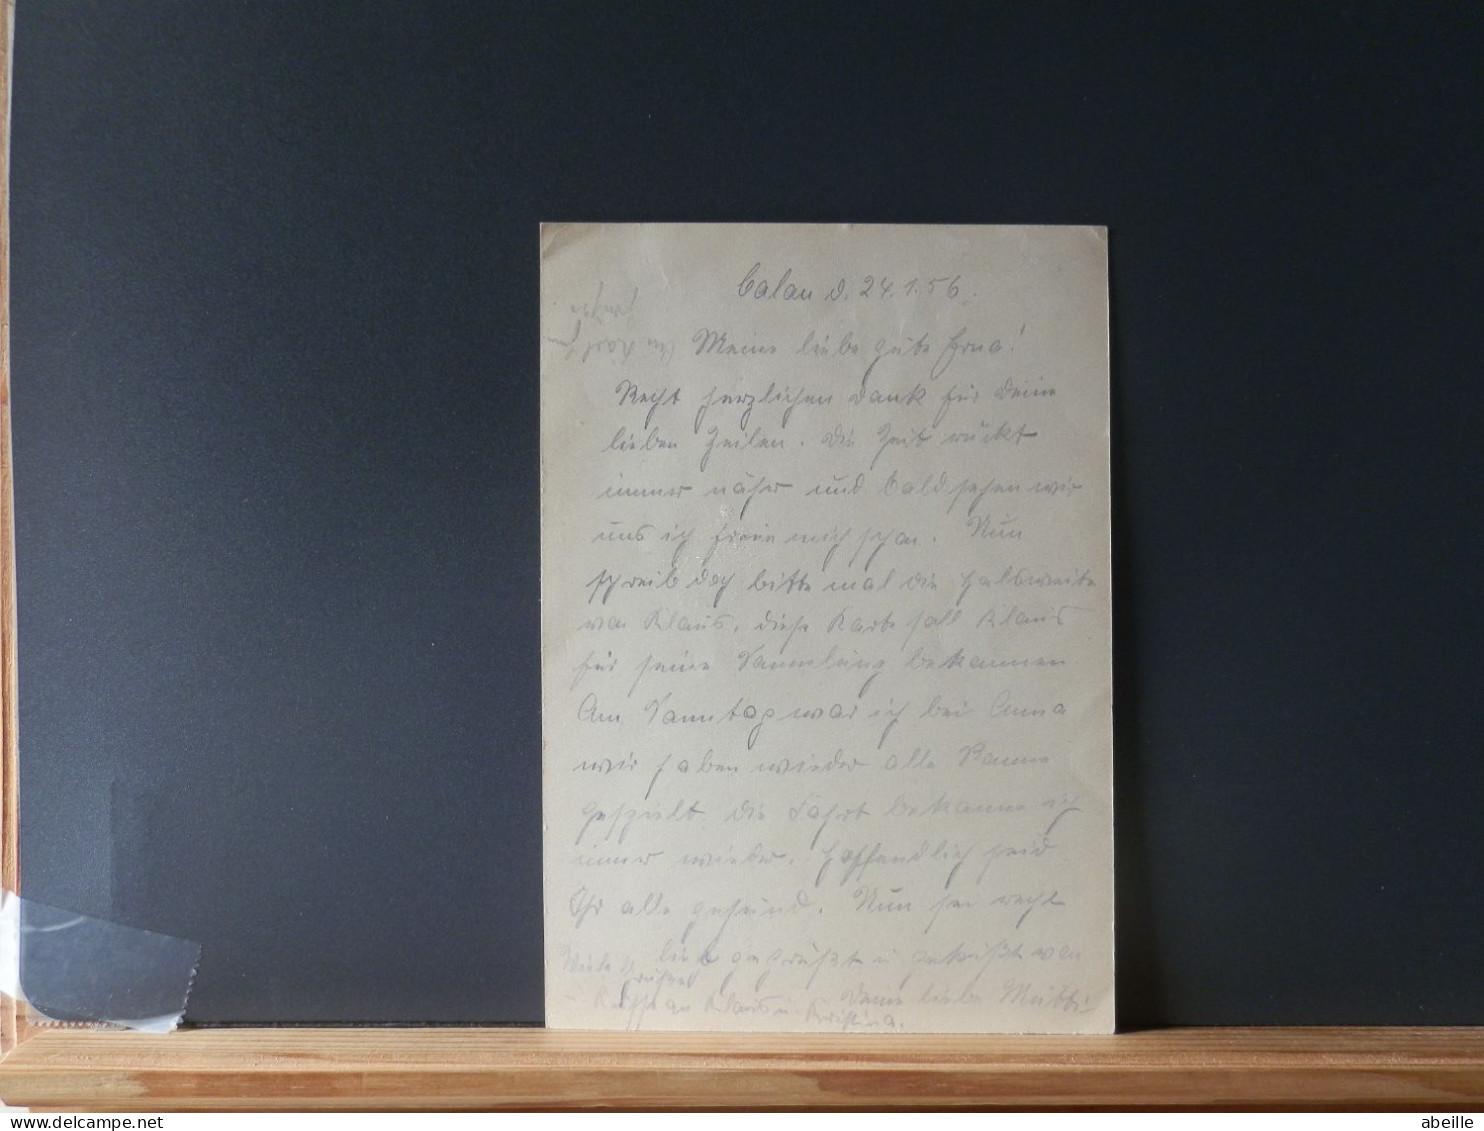 Calau d. 24.1.56.
Meine liebe gute Erna!
Recht herzlichen Dank für Deine
lieben Zeilen. Die Zeit rückt
immer näher und bald sehen wir
uns ich freue mich schon. Nun
schreib doch bitte mal die Halsweite
von Klaus, diese Karte soll Klaus
für seine Sammlung bekommen
Am Sonntag war ich bei Anna
wir haben wieder alle Romme
gespielt. die Fahrt bekomme ich
immer wieder. Hoffendlich seid
Ihr alle gesund. Nun sei recht
lieb gegrüßt u geküßt von
Deine liebe Mutti
Viele Grüße
Küsse an Klaus u. Kristina.
abeille
www.delcampe.com